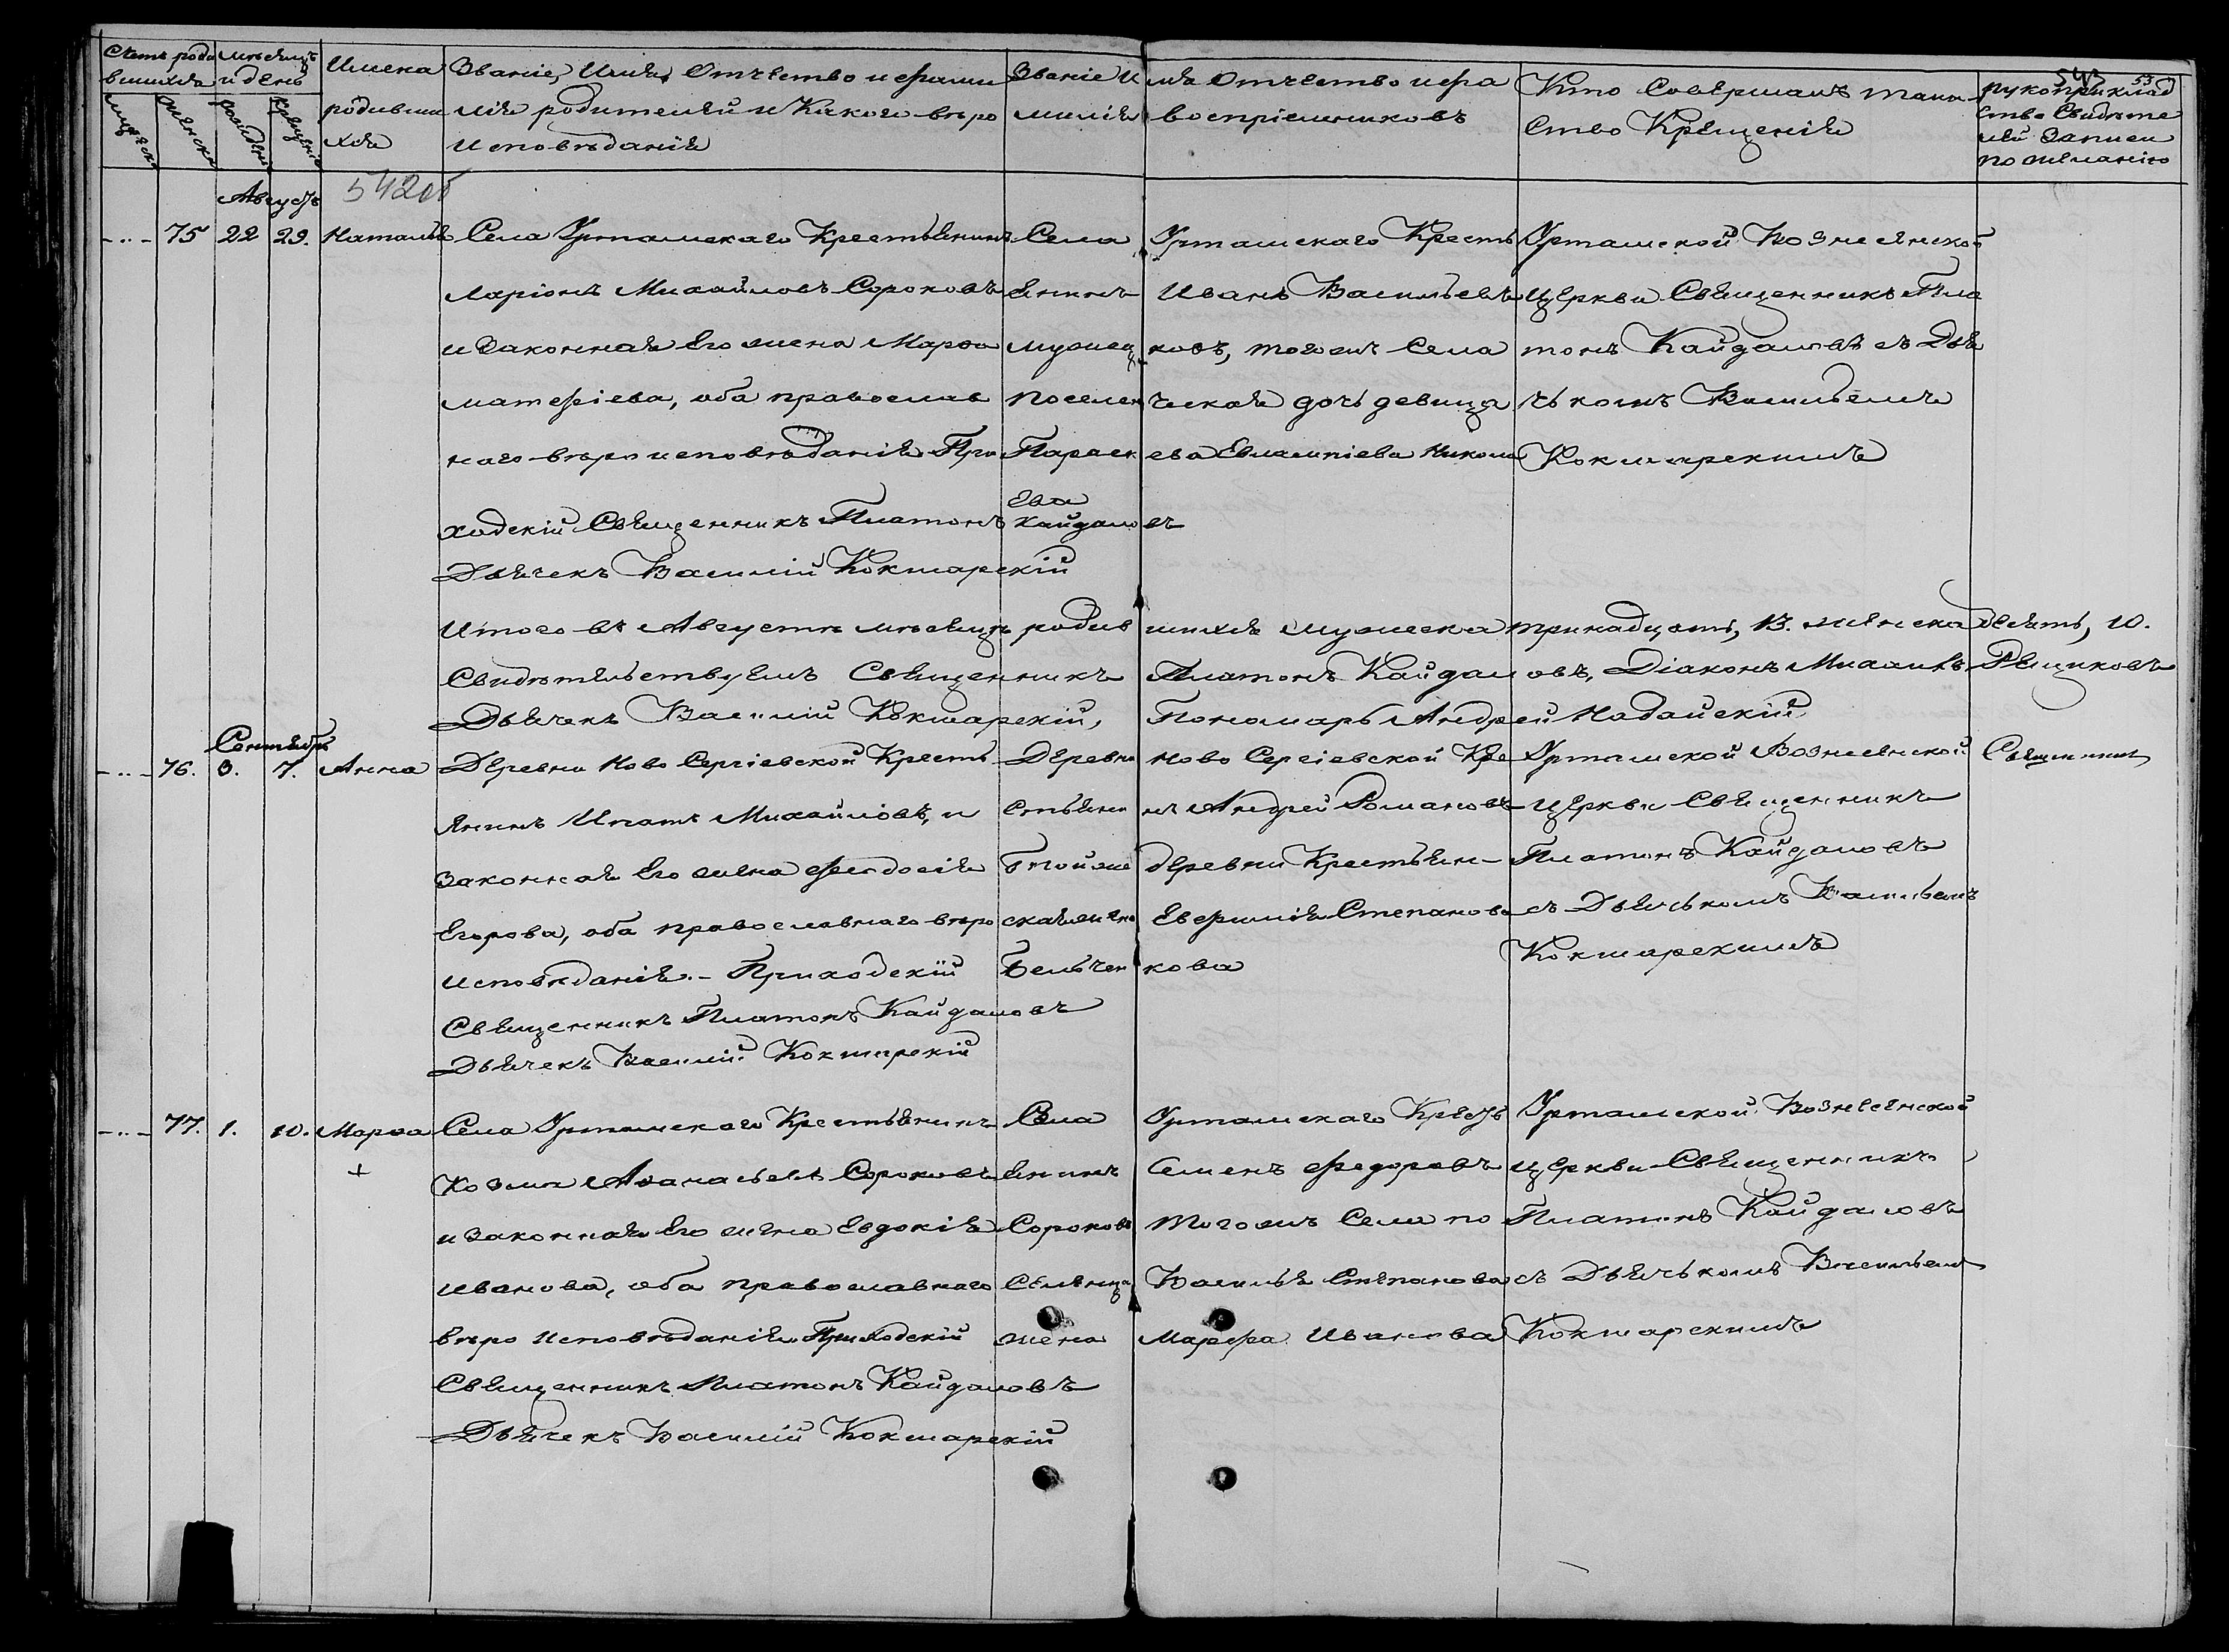 Счетъ роди
вшихся
Мѣсяцъ
и день
мужеска
женска
рожденія
крещенія
Имена
родивши
хся
Званіе, Имя, Отчество и фами
лія родителей и Какого вѣро
исповѣданія
Званіе Имя Отчество и фа
милія воспріемниковъ
Кто Совершалъ таин
ство Крещенія
рукоприклад
ство Свидѣте
лей Записи
по желанію
543
53
542об
Августъ
75 22 29. Наталья
Села Уртамскаго Крестьянинъ
Ларіонъ Михайловъ Сороковъ
и законная Его жена Марѳа
Матфіева, оба православ
наго вѣроисповѣданія При
ходскій Священникъ Платонъ Кайдаловъ
Дьячекъ Василій Кокшарскій
Села Уртамскаго Кресть
янинъ Иванъ Васильевъ
Мужец ковъ, тогожъ Села
поселенческая дочь девица
Параскева Евлампіева Никола
ева
Уртамской Вознесенской
Церкви Священникъ Пла
тонъ Кайдаловъ съ Дья
чькомъ Васильемъ
Кокшарскимъ
Итого въ Августѣ мѣсяцѣ родившихся мужеска тринадцать, 13. женска десять, 10.
Свидѣтельствуемъ Священникъ Платонъ Кайдаловъ, Діаконъ Михаилъ Рещиковъ
Дьячекъ Василій Кокшарскій, Пономарь Андрей Надайскій
Сентябрь
76. 3. 7. Анна
Деревни Ново Сергіевской Кресть
янинъ Ипатъ Михайловъ, и
законная Его жена Феодосія
Егорова, оба православнаго вѣро
исповѣданія. - Приходскій
Священникъ Платонъ Кайдаловъ
Дьячекъ Василій Кокшарскій
Деревни Ново Сергіевской Кре
стьянинъ Андрей Романовъ
Тойже деревни Крестьян-
ская жена Евфимія Степанова
Бельчен кова
Уртамской Вознесенской
Церкви Священникъ
Платонъ Кайдаловъ
съ Дьячькомъ Васильемъ
Кокшарскимъ
Священникъ
77. 1. 10. Марѳа
+
Села Уртамскаго Крестьянинъ
Козма Аѳанасьевъ Сороковъ
и законная Его жена Евдокія
Иванова, оба православнаго
вѣро исповѣданія Приходскій
Священникъ Платонъ Кайдаловъ
Дьячекъ Василій Кокшарскій
Села Уртамскаго Кресть
янинъ Семенъ Федоровъ
Сороковъ Тогожъ Села по
селенца Василья Степанова
жена Марфа Иванова
Уртамской Вознесенской
Церкви Священникъ
Платонъ Кайдаловъ
съ Дьячькомъ Васильемъ
Кокшарскимъ